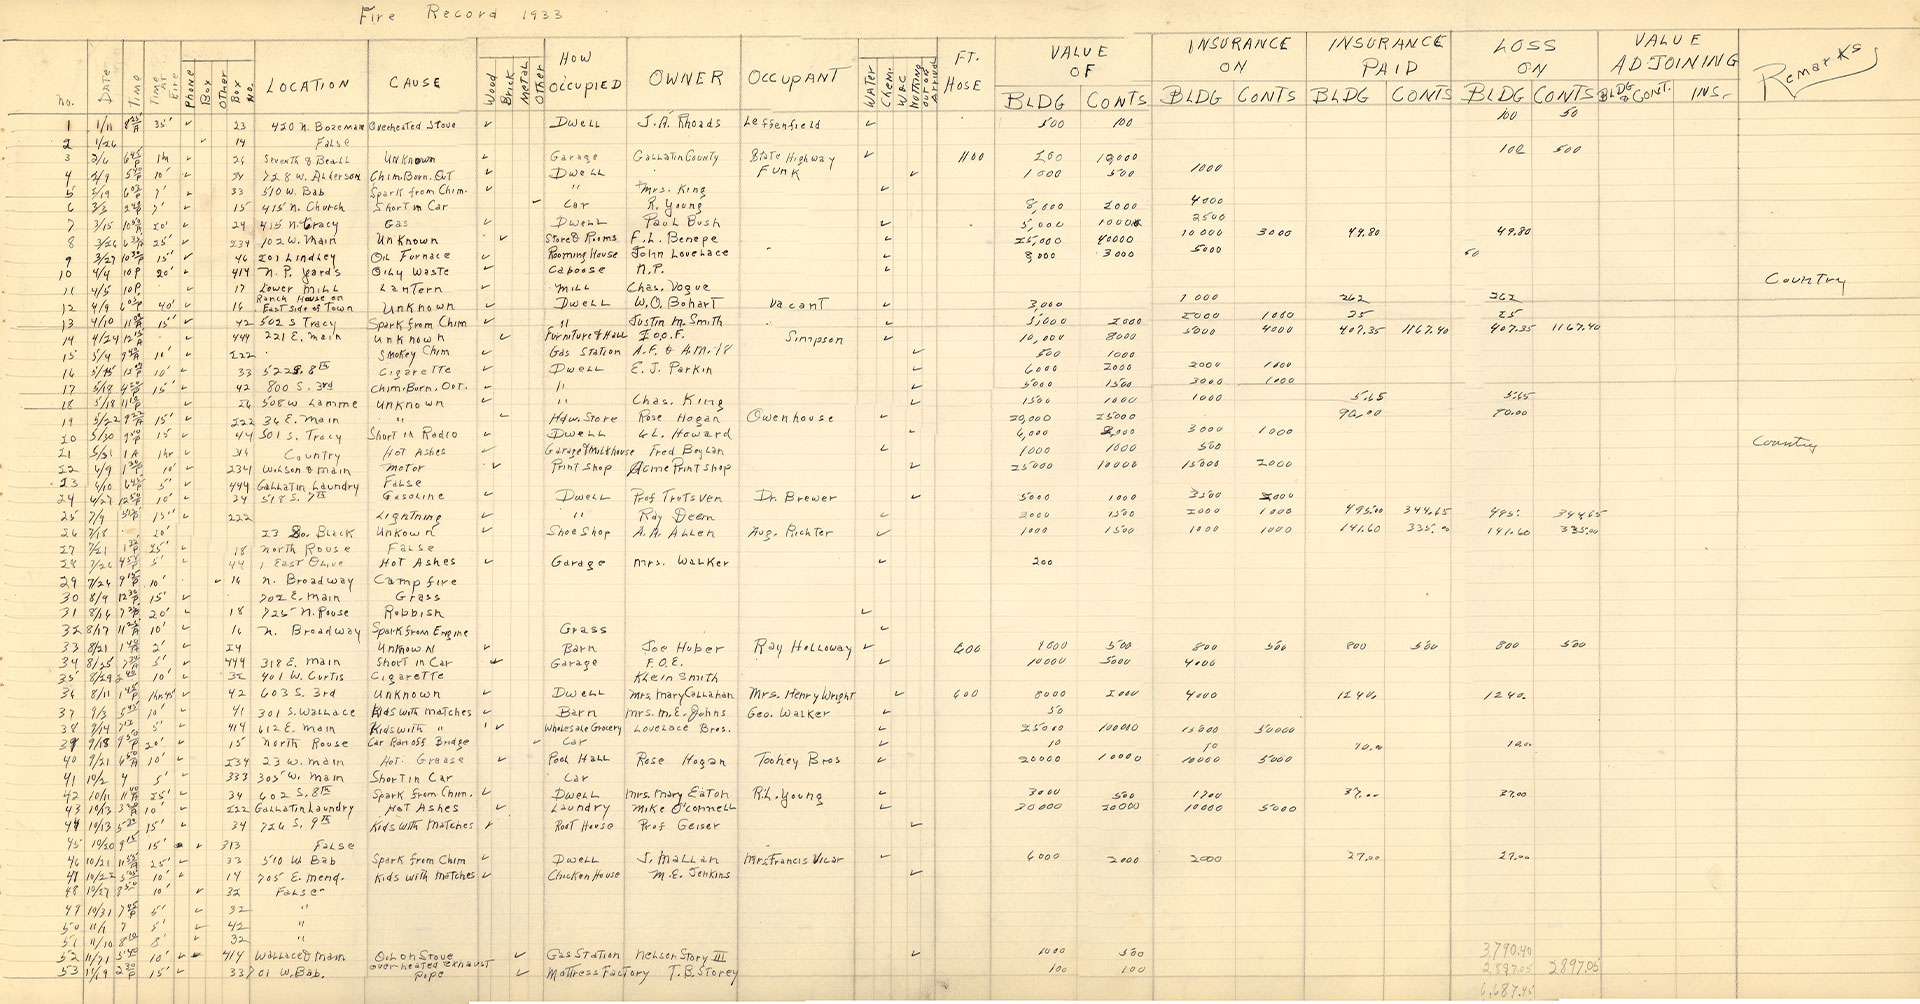 Fire Record 1933
No. DATE TIME TIME AT FIRE Phone Box Other Box No. LOCATION CAUSE Wood Brick METAL OTHER HOW OCCUPIED OWNER OCCUPANT WATER Chem. W&C Nothing out on Arrival FT. HOSE VALUE OF BLDG CONTS INSURANCE ON BLDG CONTS INSURANCE PAID BLDG CONTS LOSS ON BLDG CONTS VALUE ADJOINING BLDG & CONT. INS. Remarks
1 1/11 35" ✓ 23 420 N. Bozeman Overheated Stove ✓ Dwell J.A. Rhoads Leffenfield ✓ 500 100 100 50
2 1/26 ✓ 14 False
3 2/6 1h ✓ 26 Seventh & Beall Unknown ✓ Garage Gallatin County State Highway ✓ 1100 200 12,000 100 500
4 2/9 10' ✓ 34 728 W. Alderson Chim. Born. Out ✓ Dwell Funk ✓ 1000 500 1000
5 2/19 7' ✓ 33 510 W. Bab Spark from Chim. ✓ " Mrs. King ✓
6 3/3 7' ✓ 15 415 N. Church Short in Car ✓ Car R. Young 8,000 2000 4000
7 3/15 20' ✓ 24 415 N. Tracy Gas ✓ Dwell Paul Bush ✓ 5,000 1000 2500
8 3/26 25' ✓ 234 102 W. Main Unknown ✓ Store & Rooms F.L. Benepe ✓ 25,000 40000 10000 3000 49.80 49.80
9 3/27 15" ✓ 46 201 Lindley Oil Furnace ✓ Rooming House John Lovelace ✓ 8,000 3000 5000 50
10 4/4 10P 20' ✓ 414 N. P. Yards Oily Waste ✓ Caboose N.P. ✓
11 4/5 10P ✓ 17 Lower Mill Lantern ✓ Mill Chas. Vogue ✓ Country
12 4/9 40' ✓ 16 Ranch House on East side of Town Unknown ✓ Dwell W.O. Bohart Vacant ✓ 3,000 1000 262 262
13 4/10 15" ✓ 42 502 S Tracy Spark from Chim ✓ " Justin M. Smith ✓ 5,000 2000 2000 1000 25 25
14 4/24 ✓ 444 221 E. Main Unknown ✓ Furniture & Hall I.O.O.F. Simpson ✓ 10,000 8000 5000 4000 407.35 1167.40 407.35 1167.40
15 5/4 10' ✓ 222 Smokey Chim ✓ Gas Station A.F. & A.M. 18 ✓ 500 1000
16 5/15 10' ✓ 33 522 S. 8th Cigarette ✓ Dwell E. J. Parkin ✓ 6000 2000 2000 1000
17 5/18 15' ✓ 42 800 S. 3rd Chim. Born. Out. ✓ " ✓ 5000 1500 3000 1000
18 5/18 ✓ 26 508 W Lamme Unknown ✓ " Chas. King ✓ 1500 1000 1000 5.65 5.65
19 5/22 15' ✓ 222 36 E. Main " ✓ Hdw. Store Rose Hogan Owenhouse ✓ 20,000 25000 70.00
20 5/30 15' ✓ 44 501 S. Tracy Short in Radio ✓ Dwell G.L. Howard ✓ 6,000 2,000 3000 1000
21 5/31 1A 1hr ✓ 314 Country Hot Ashes ✓ Garage & Milkhouse Fred Boylan ✓ 1000 1000 500 Country
22 6/9 10' ✓ 234 Willson & Main Motor ✓ Print Shop Acme Print Shop ✓ 25000 10000 15000 2000
23 6/10 5' ✓ 444 Gallatin Laundry False
24 6/27 10' ✓ 34 518 S. 7th Gasoline ✓ Dwell Prof Trotsven Dr. Brewer ✓ 5000 1000 3500 2000
25 7/9 15" ✓ 222 Lightning ✓ " Ray Deem ✓ 2000 1500 2000 1000 495.00 344.65 495. 344.65
26 7/18 20' 23 So. Black Unkown ✓ Shoe Shop A.A. Allen Aug. Richter ✓ 1000 1500 1000 1000 141.60 335.00 141.60 335.00
27 7/21 25' ✓ 18 North Rouse False
28 7/26 5' ✓ 44 1 East Olive Hot Ashes ✓ Garage Mrs. Walker ✓ 200
29 7/24 10' ✓ 16 N. Broadway Camp fire
30 8/9 15' ✓ 702 E. Main Grass
31 8/16 20' ✓ 18 725 N. Rouse Rubbish ✓
32 8/17 10' ✓ 16 N. Broadway Spark from Engine Grass ✓
33 8/21 2' ✓ 24 Unknown ✓ Barn Joe Huber Ray Holloway ✓ 600 1000 500 800 500 800 500 800 500
34 8/25 5' ✓ 444 318 E. Main Short in Car ✓ Garage F.O.E. ✓ 10000 5000 4000
35 8/29 10' ✓ 32 401 W. Curtis Cigarette Klein Smith
36 8/11 1hr 45' ✓ 42 603 S. 3rd Unknown ✓ Dwell Mrs. Mary Callahan Mrs. Henry Wright ✓ 600 8000 2000 4000 1240. 1240.
37 9/3 10' ✓ 41 301 S. Wallace Kids with matches ✓ Barn Mrs. M.E. Johns Geo. Walker ✓ 50
38 9/14 5' ✓ 414 612 E. Main Kids with " ✓ Wholesale Grocery Lovelace Bros. ✓ 25000 10000 15000 50000
39 9/18 20' ✓ 15 North Rouse Car Ran off Bridge ✓ Car ✓ 10 10 10.00 10.00
40 9/21 10' ✓ 234 23 W. Main Hot Grease ✓ Pool Hall Rose Hogan Toohey Bros ✓ 20000 10000 10000 5000
41 10/2 4 5' ✓ 333 305 W. Main Short in Car Car
42 10/11 25' ✓ 34 602 S. 8th Spark from Chim. ✓ Dwell Mrs. Mary Eaton R.L. Young ✓ 3000 500 1700 37.00 37.00
43 10/13 10' ✓ 222 Gallatin Laundry Hot Ashes ✓ Laundry Mike O'Connell ✓ 30000 20000 10000 5000
44 10/13 15' ✓ 34 726 S. 9th Kids with Matches ✓ Root House Prof Geiser ✓
45 10/20 15' ✓ 313 False
46 10/21 25' ✓ 33 510 W Bab Spark from Chim ✓ Dwell J. Mallan Mrs Francis Vicar ✓ 6000 2000 2000 27.00 27.00
47 10/22 10' ✓ 14 705 E. Mend. Kids with Matches ✓ Chicken House M.E. Jenkins ✓
48 10/27 10' ✓ 32 False
49 10/31 5' ✓ 32 "
50 11/1 7 5' ✓ 42 "
51 11/10 8' ✓ 32 "
52 11/21 10' ✓ 414 Wallace & Main Oil on Stove ✓ Gas Station Nelson Story III ✓ 1000 500 3,790.40
53 11/9 15' ✓ 33 701 W. Bab. overheated exhaust pipe ✓ Mattress Factory T.B. Storey ✓ 100 100 2,897.05 2897.05
6,687.45